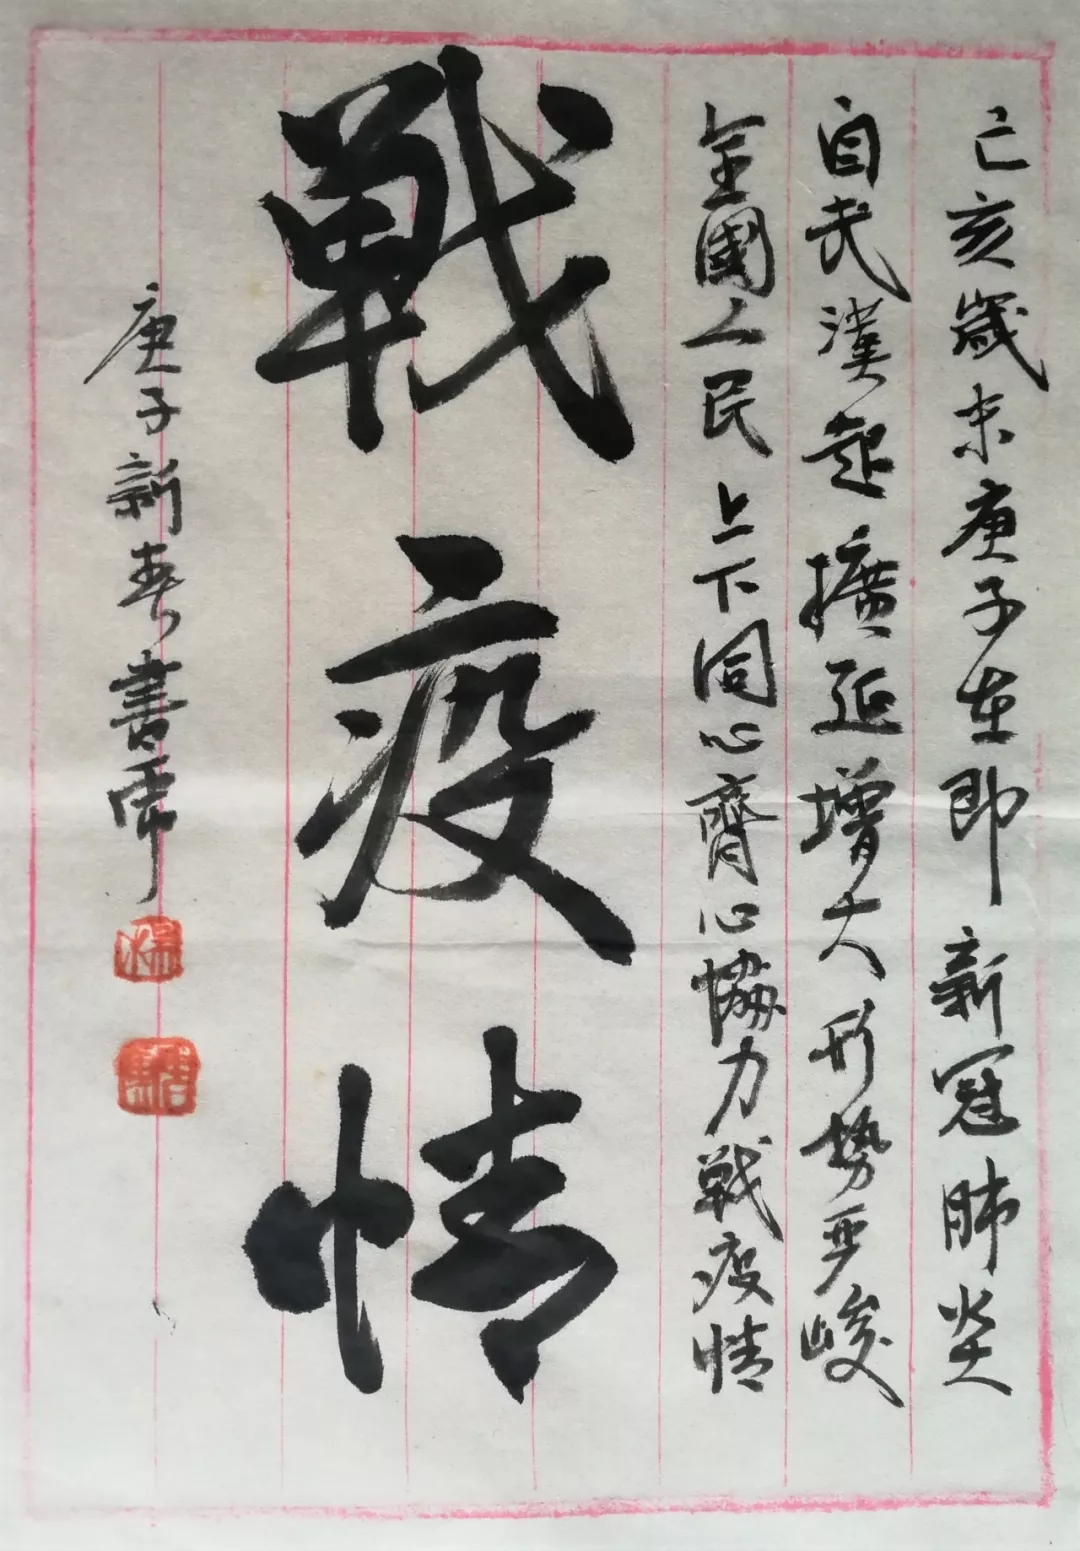 己亥歲末庚子在即新冠肺炎
自武漢起擴延增大形势严峻
全國人民上下同心齊心協力戰疫情
戰疫情
庚子新春書